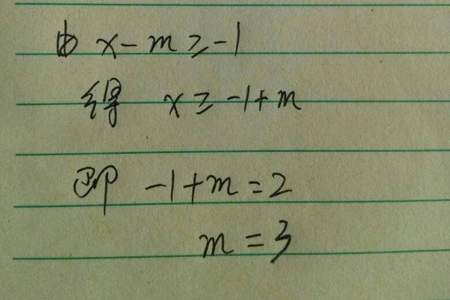 由 x-m≥-1
得 x≥-1+m
即 -1+m=2
m=3